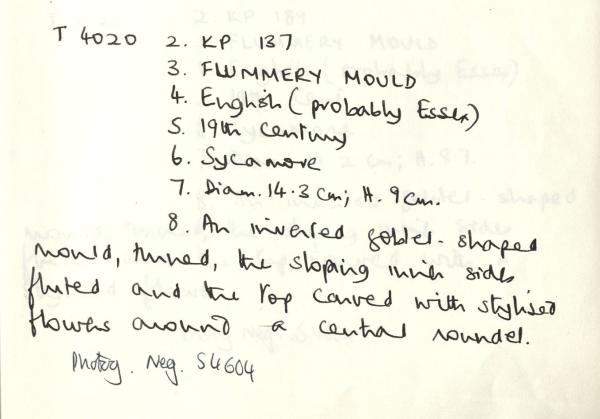 T 4020 2. KP 137
3. FLUMMERY MOULD
4. English (probably Essex)
5. 19th Century
6. Sycamore
7. Diam. 14.3 cm; H. 9 cm.
8. An inverted goblet-shaped
mould, turned, the sloping inner sides
fluted and the top carved with stylised
flowers around a central roundel.
Photog. Neg. S4604